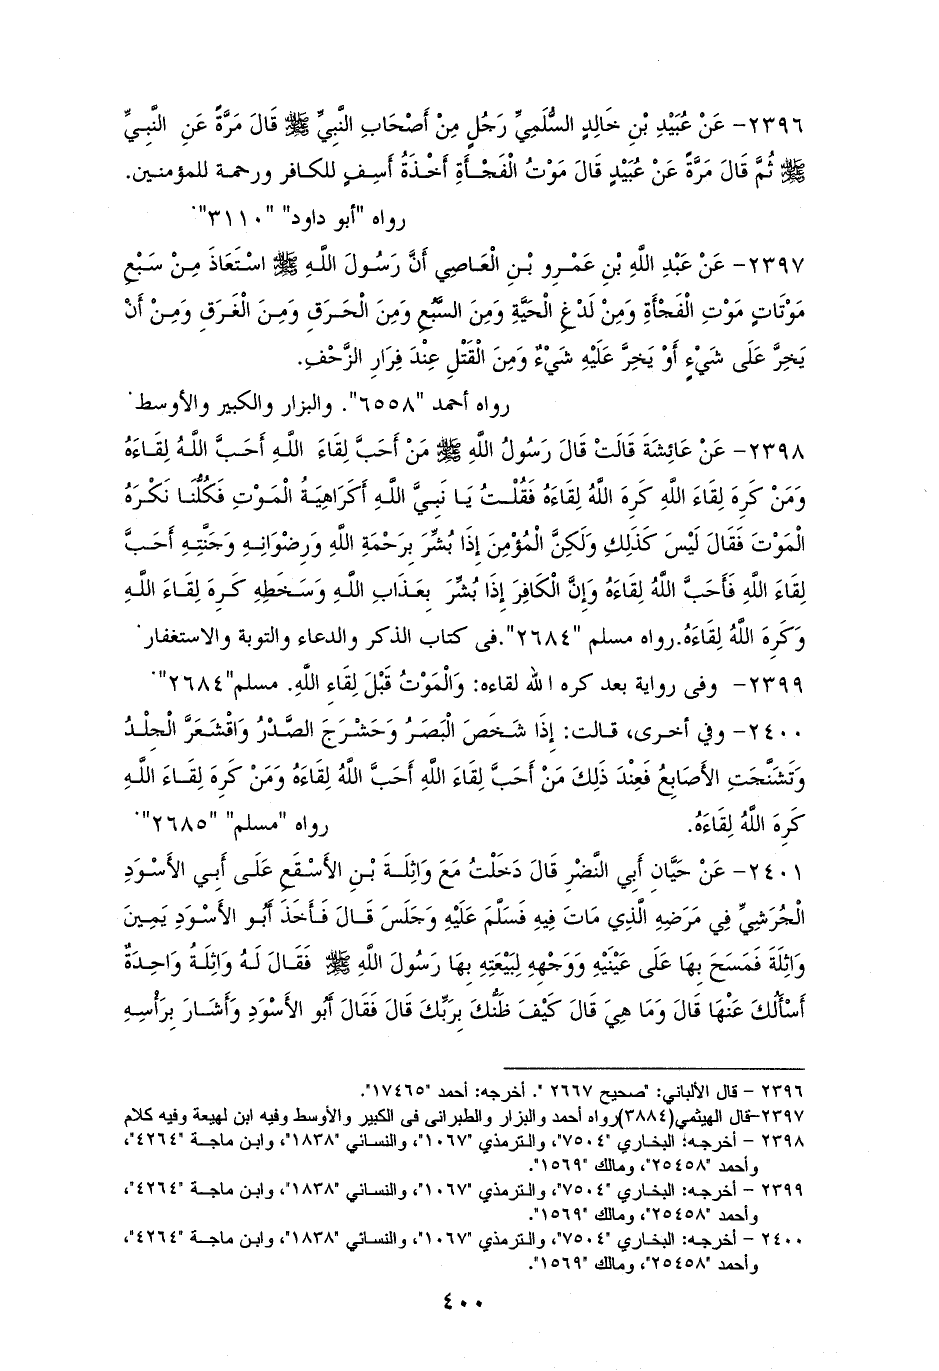 ٢٣٩٦- عَنْ عُبَيْدِ بْنِ خَالِدٍ السُّلَمِيِّ رَجُلٍ مِنْ أَصْحَابِ النَّبِيِّ ﷺ قَالَ مَرَّةً عَنِ النَّبِيِّ
ﷺ ثُمَّ قَالَ مَرَّةً عَنْ عُبَيْدٍ قَالَ مَوْتُ الْفَجْأَةِ أَخْذَةُ أَسِفٍ للكافر ورحمة للمؤمنين.
رواه "أبو داود" "٣١١٠".
٢٣٩٧- عَنْ عَبدِ اللَّهِ بْنِ عَمْرِو بْنِ الْعَاصِي أَنَّ رَسُولَ اللَّهِ ﷺ اسْتَعَاذَ مِنْ سَبْعِ
مَوْتَاتٍ مَوْتِ الْفَجْأَةِ وَمِنْ لَدْغِ الْحَيَّةِ وَمِنَ السَّبُعِ وَمِنَ الْحَرَقِ وَمِنَ الْغَرَقِ وَمِنْ أَنْ
يَخِرَّ عَلَى شَيْءٍ أَوْ يَخِرَّ عَلَيْهِ شَيْءٌ وَمِنَ الْقَتْلِ عِنْدَ فِرَارِ الزَّحْفِ.
رواه أحمد "٦٥٥٨". والبزار والكبير والأوسط.
٢٣٩٨- عَنْ عَائِشَةَ قَالَتْ قَالَ رَسُولُ اللَّهِ ﷺ مَنْ أَحَبَّ لِقَاءَ اللَّهِ أَحَبَّ اللَّهُ لِقَاءَهُ
وَمَنْ كَرِهَ لِقَاءَ اللَّهِ كَرِهَ اللَّهُ لِقَاءَهُ فَقُلْتُ يَا نَبِيَّ اللَّهِ أَكَرَاهِيَةُ الْمَوْتِ فَكُلُّنَا نَكْرَهُ
الْمَوْتَ فَقَالَ لَيْسَ كَذَلِكِ وَلَكِنَّ الْمُؤْمِنَ إِذَا بُشِّرَ بِرَحْمَةِ اللَّهِ وَرِضْوَانِهِ وَجَنَّتِهِ أَحَبَّ
لِقَاءَ اللَّهِ فَأَحَبَّ اللَّهُ لِقَاءَهُ وَإِنَّ الْكَافِرَ إِذَا بُشِّرَ بِعَذَابِ اللَّهِ وَسَخَطِهِ كَرِهَ لِقَاءَ اللَّهِ
وَكَرِهَ اللَّهُ لِقَاءَهُ.رواه مسلم "٢٦٨٤".فى كتاب الذكر والدعاء والتوبة والاستغفار.
٢٣٩٩- وفى رواية بعد كره الله لقاءه: وَالْمَوْتُ قَبْلَ لِقَاءِ اللَّهِ. مسلم"٢٦٨٤".
٢٤٠٠- وفي أخرى، قالت: إِذَا شَخَصَ الْبَصَرُ وَحَشْرَجَ الصَّدْرُ وَاقْشَعَرَّ الْجِلْدُ
وَتَشَنَّجَتِ الأَصَابِعُ فَعِنْدَ ذَلِكَ مَنْ أَحَبَّ لِقَاءَ اللَّهِ أَحَبَّ اللَّهُ لِقَاءَهُ وَمَنْ كَرِهَ لِقَاءَ اللَّهِ
كَرِهَ اللَّهُ لِقَاءَهُ. رواه "مسلم" "٢٦٨٥".
٢٤٠١- عَنْ حَيَّانَ أَبِي النَّضْرِ قَالَ دَخَلْتُ مَعَ وَاثِلَةَ بْنِ الأَسْقَعِ عَلَى أَبِي الأَسْوَدِ
الْجُرَشِيِّ فِي مَرَضِهِ الَّذِي مَاتَ فِيهِ فَسَلَّمَ عَلَيْهِ وَجَلَسَ قَالَ فَأَخَذَ أَبُو الأَسْوَدِ يَمِينَ
وَاثِلَةَ فَمَسَحَ بِهَا عَلَى عَيْنَيْهِ وَوَجْهِهِ لِبَيْعَتِهِ بِهَا رَسُولَ اللَّهِ ﷺ فَقَالَ لَهُ وَاثِلَةُ وَاحِدَةٌ
أَسْأَلُكَ عَنْهَا قَالَ وَمَا هِيَ قَالَ كَيْفَ ظَنُّكَ بِرَبِّكَ قَالَ فَقَالَ أَبُو الأَسْوَدِ وَأَشَارَ بِرَأْسِهِ
٢٣٩٦ – قال الألباني: "صحيح ٢٦٦٧ ". أخرجه: أحمد "١٧٤٦٥".
٢٣٩٧–قال الهيثمي(٣٨٨٤)رواه أحمد والبزار والطبرانى فى الكبير والأوسط وفيه ابن لهيعة وفيه كلام
٢٣٩٨ – أخرجه: البخاري "٧٥٠٤"، والترمذي "١٠٦٧"، والنسائي "١٨٣٨"، وابن ماجة "٤٢٦٤"،
وأحمد "٢٥٤٥٨"، ومالك "١٥٦٩".
٢٣٩٩ – أخرجه: البخاري "٧٥٠٤"، والترمذي "١٠٦٧"، والنسائي "١٨٣٨"، وابن ماجة "٤٢٦٤"،
وأحمد "٢٥٤٥٨"، ومالك "١٥٦٩".
٢٤٠٠ – أخرجه: البخاري "٧٥٠٤"، والترمذي "١٠٦٧"، والنسائي "١٨٣٨"، وابن ماجة "٤٢٦٤"،
وأحمد "٢٥٤٥٨"، ومالك "١٥٦٩".
٤٠٠